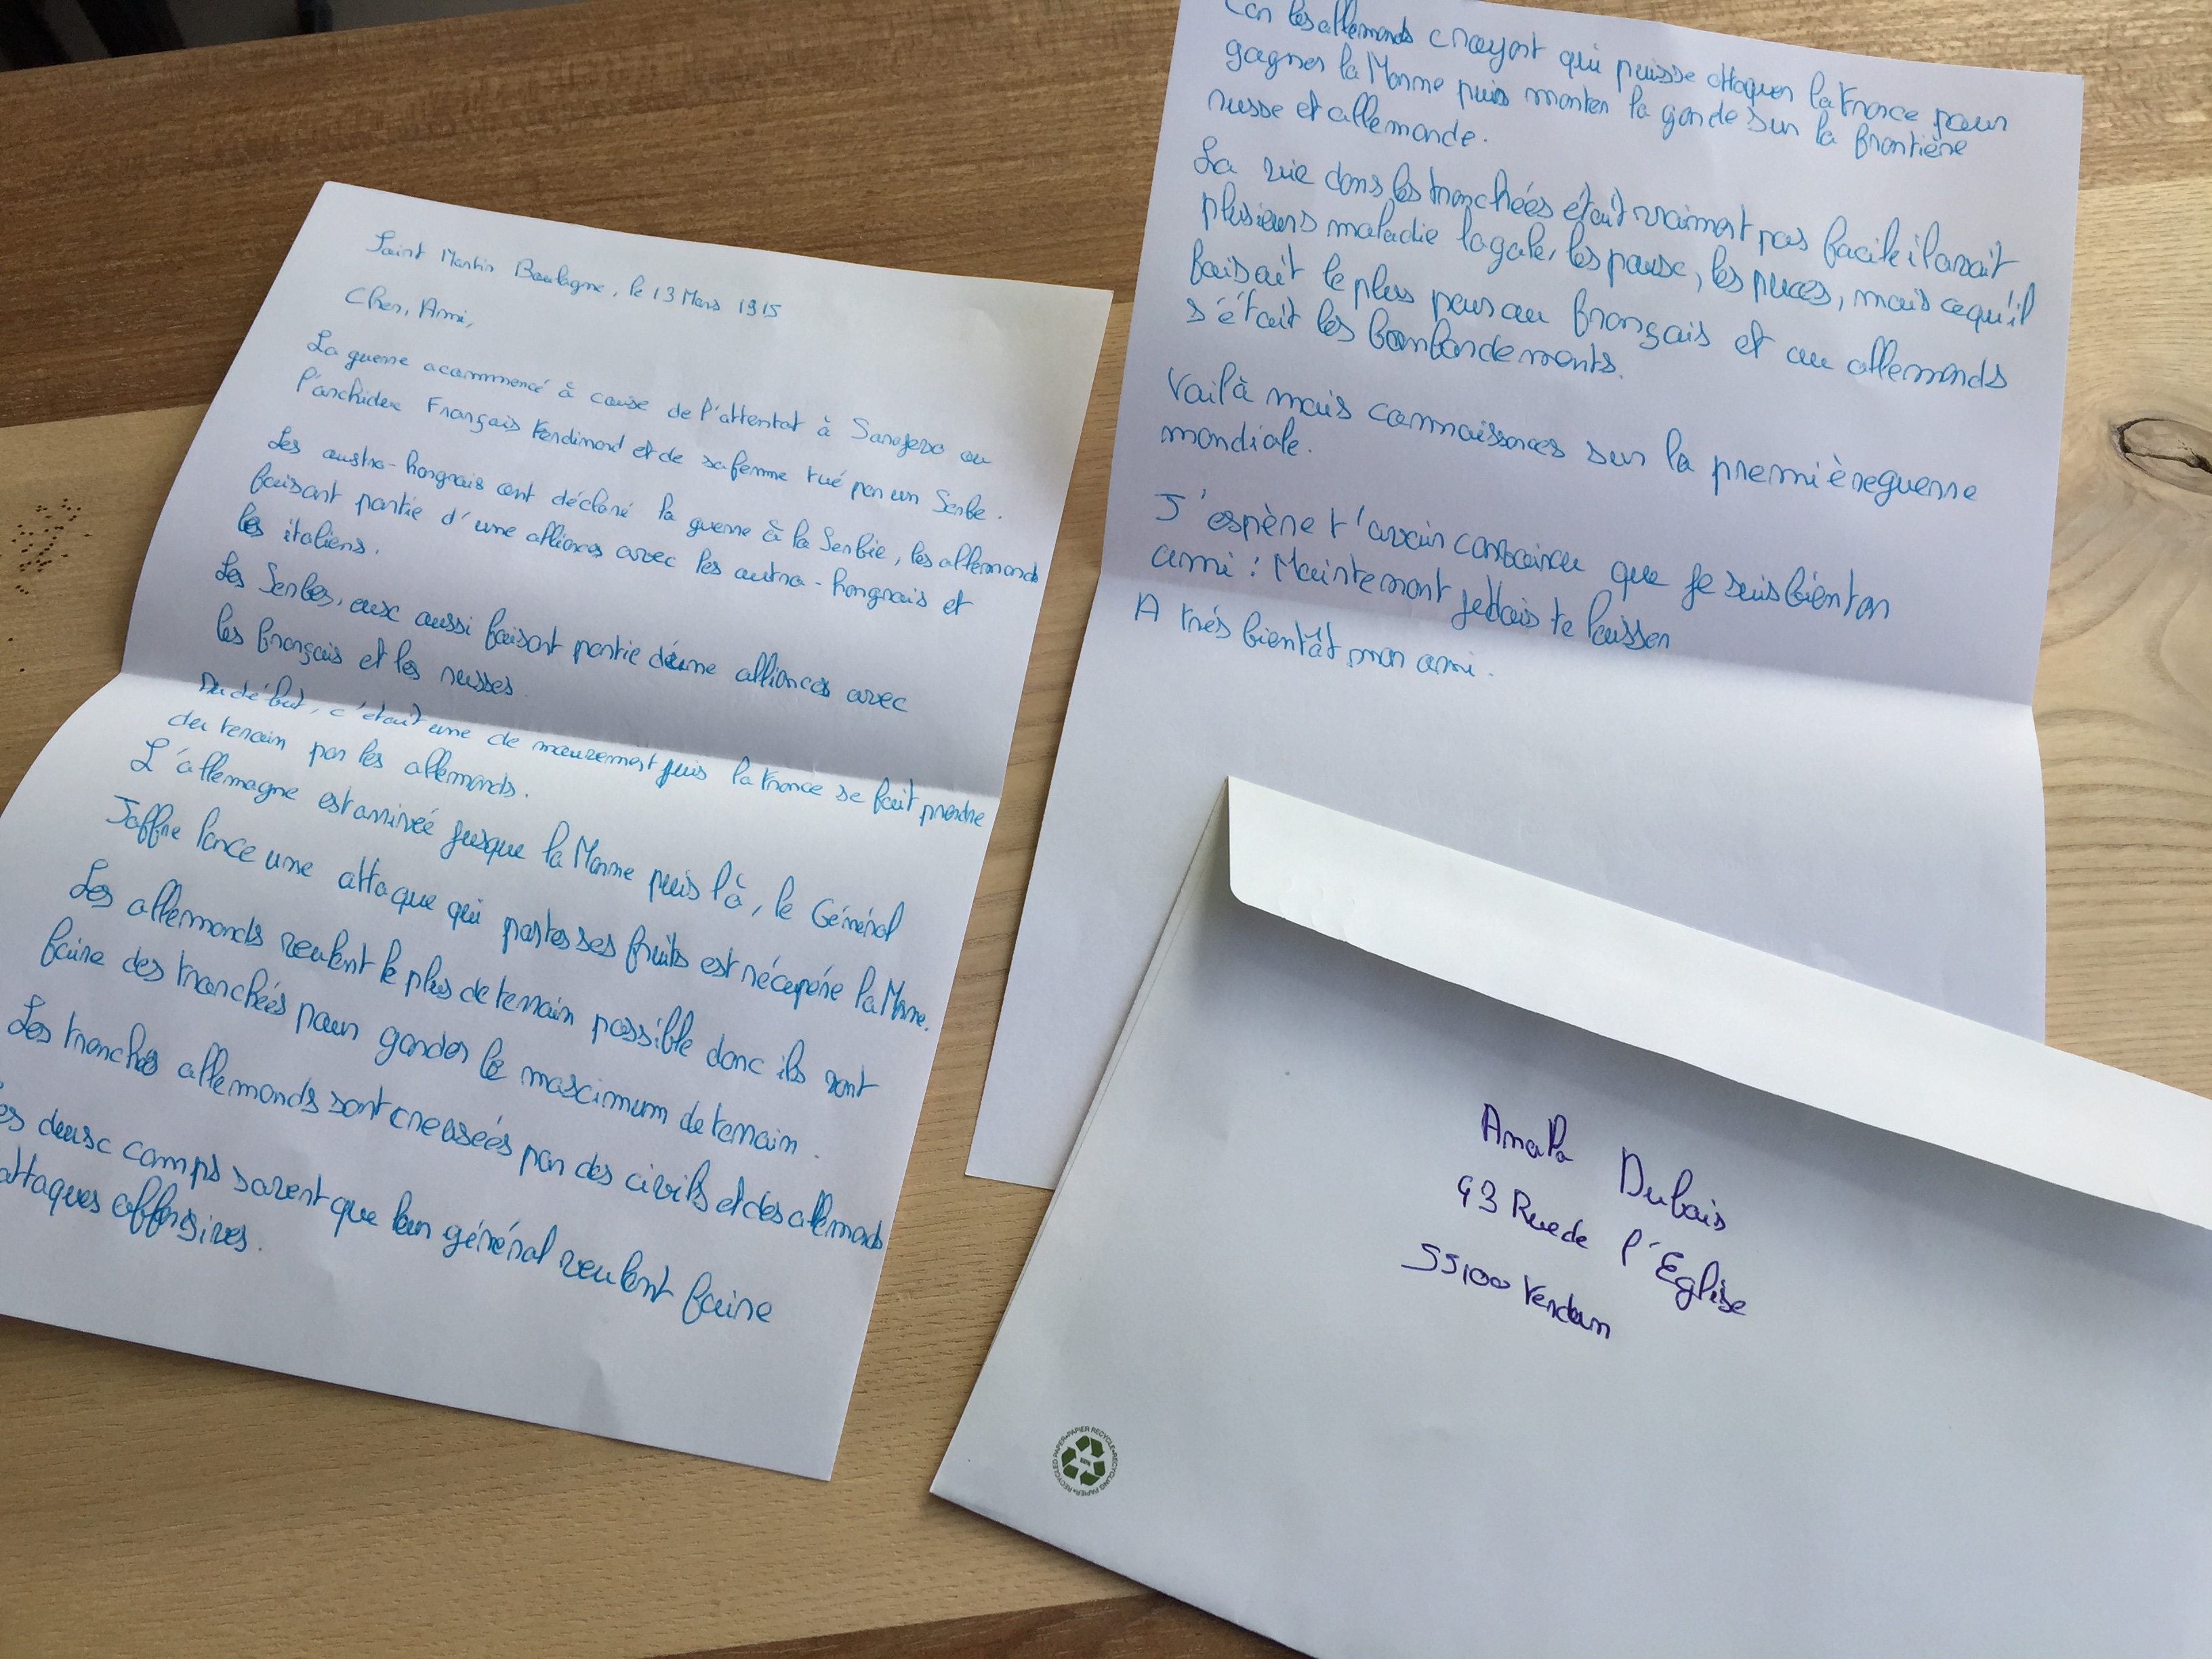 Saint Martin Boulogne, le 13 Mars 1915
Cher, Ami,
La guerre a commmencé à cause de l'attentat à Sarajevo ou
l'archidux Français Ferdinand et de sa femme tué par un Serbe.
Les austro-hongrais ont déclaré la guerre à la Serbie, les allemands
faisant partie d'une alliances avec les autro-hongrais et
les italiens.
Les Serbes, eux aussi faisant partie d'une alliances avec
les français et les russes.
Au début, c'était une de mouvement puis la France se fait prendre
du terain par les allemands.
L'allemagne est arrivée jusque la Marne puis là, le Général
Joffre lance une attaque qui portes ses fruits est récupére la Marne.
Les allemands veulent le plus de terrain possible donc ils vont
faire des tranchées pour garder le maximum de terrain.
Les tranches allemands sont creusées par des civils et des allemands
es deux camps savent que leur général veulent faire
attaques offensives.
Car les allemands crayont qui puisse attaquer la France pour
gagner la Marne puis monter la garde sur la frontière
russe et allemande.
La vie dans les tranchées était vraiment pas facile il avait
plusieurs maladie la gale, les poux, les puces, mais ce qu'il
faisait le plus peur au français et au allemands
s'était les bombardements.
Voilà mais connaissances sur la première guerre
mondiale.
J'espère t'avoir convaincu que je suis bien ton
ami: Maintemant je vais te laisser
A trés bientôt mon ami.
Amala Dubois
93 Rue de l'Eglise
55100 Verdun
RECYCLED PAPER • PAPIER RECYCLE • RECYCLING PAPIER •